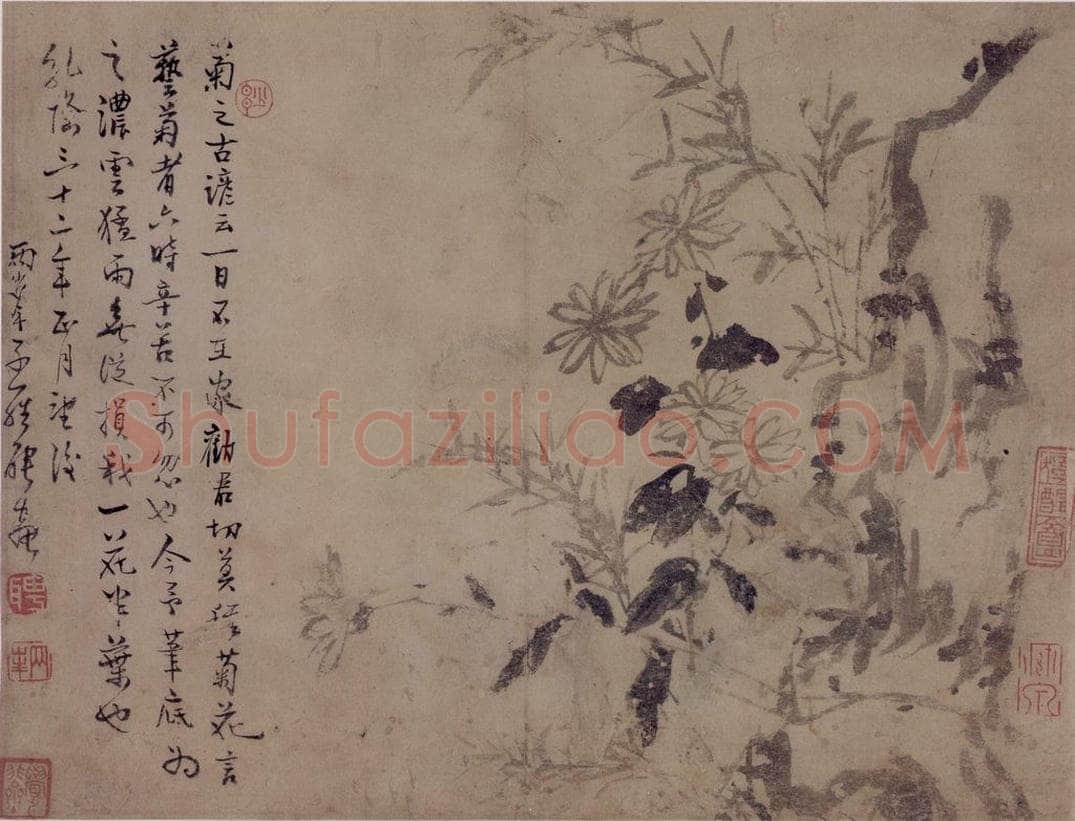 菊之古諺云一日不在家勸君切莫種菊花言
藝菊者六時辛苦不可忽也今予筆底為
之濃雲猛雨無從損我一花半葉也
乾隆三十二年正月望後
兩峯子羅聘畫
聘
Shufaziliao.COM